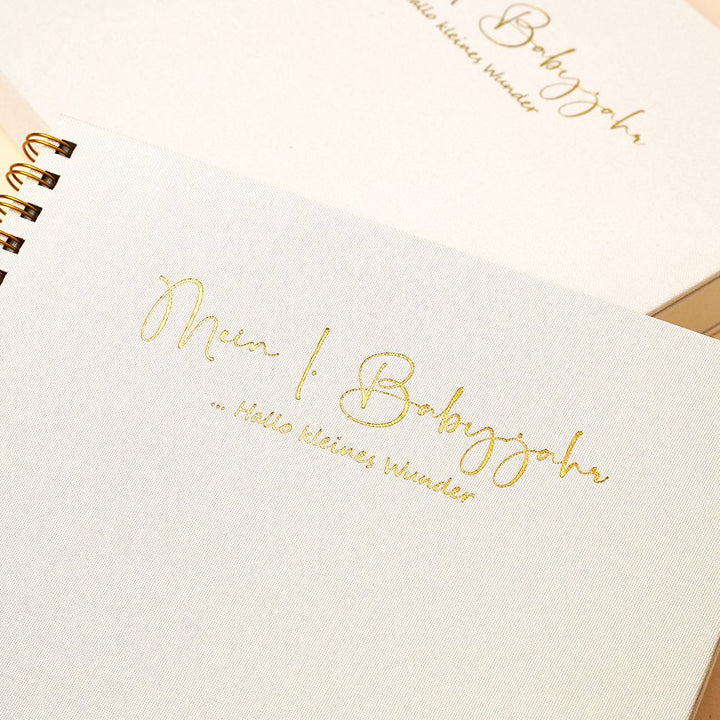 Babyjahr
Hallo kleines Wunder
Mein 1. Babyjahr
... Hallo kleines Wunder